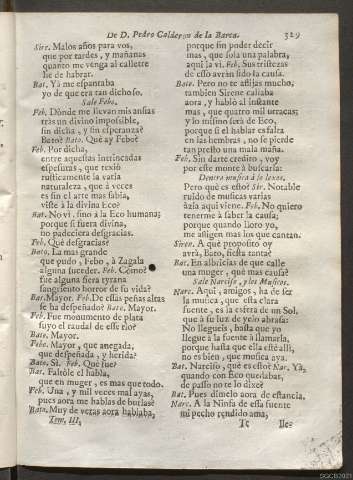 De D. Pedro Calderon de la Barca. 329
Sire. Malos años para vos,
que por tardes, y mañanas
quanto me venga al callette
he de habrar.
Bat. Ya me espantaba
yo de que era tan dichoso.
Sale Febo.
Feb. Dònde me llevan mis ansias
tràs un divino impossible,
sin dicha, y sin esperanza?
Bato? Bato. Què ay Febo?
Feb. Por dicha,
entre aquestas intrincadas
espesuras, que texiò
rusticamente la varia
naturaleza, que à veces
es sin el arte mas sabia,
viste à la divina Eco?
Bat. No vi, sino à la Eco humana;
porque si fuera divina,
no padeciera desgracias.
Feb. Què desgracias?
Bato. La mas grande
que pudo, Febo, à Zagala
alguna suceder. Feb. Còmo?
fue alguna fiera tyrana
sangriento horror de su vida?
Bat. Mayor. Feb. De essas peñas altas
se ha despeñado? Bato. Mayor.
Feb. Fue monumento de plata
suyo el raudal de esse rio?
Bato. Mayor.
Febo. Mayor, que anegada,
que despeñada, y herida?
Bato. Si. Feb. Què fue?
Bat. Faltòle el habla,
que en muger, es mas que todo.
Feb. Una, y mil veces mal ayas,
pues aora me hablas de burlas?
Bato. Muy de veras aora hablaba,
Tom. III.
porque sin poder decir
mas, que sola una palabra,
aqui la vi. Feb. Sus tristezas
de esso avràn sido la causa.
Bato. Pero no te aflijas mucho,
tambien Sirene callaba
aora, y hablò al instante
mas, que quatro mil urracas;
y lo mismo serà de Eco,
porque si el hablar es falta
en las hembras, no se pierde
tan presto una mala maña.
Feb. Sin darte credito, voy
por este monte à buscarla:
Dentro musica à lo lexos.
Pero què es esto? Sir. Notable
ruido de musicas varias
àzia aqui viene. Feb. No quiero
tenerme à saber la causa;
porque quando lloro yo,
me afligen mas los que cantan.
Siren. A què proposito oy
avrà, Bato, fiesta tanta?
Bat. En albricias de que calle
una muger, què mas causa?
Sale Narciso, y los Musicos.
Narc. Aqui, amigos, ha de ser
la musica, que esta clara
fuente, es la esfera de un Sol,
que à su luz de yelo abrasa:
No llegueis, hasta que yo
llegue à la fuente à llamarla,
porque hasta que ella estè alli,
no es bien, que musica aya.
Bat. Narciso, què es esto? Nar. Yà,
quando con Eco quedabas,
de passo no te lo dixe?
Bat. Pues dimelo aora de estancia.
Narc. A la Ninfa de essa fuente
mi pecho rendido ama;
Tt lle-
SGCB2021